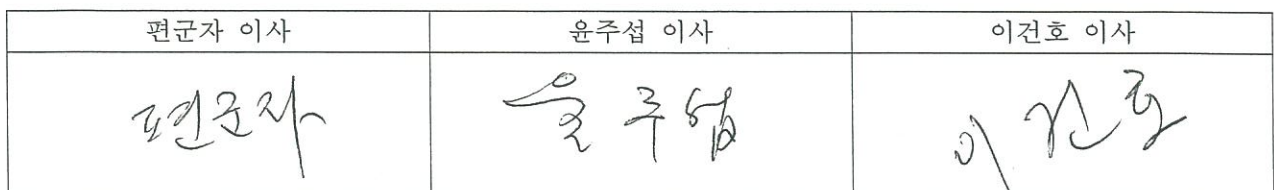 편군자 이사 윤주섭 이사 이건호 이사
편군자 윤주섭 이건호